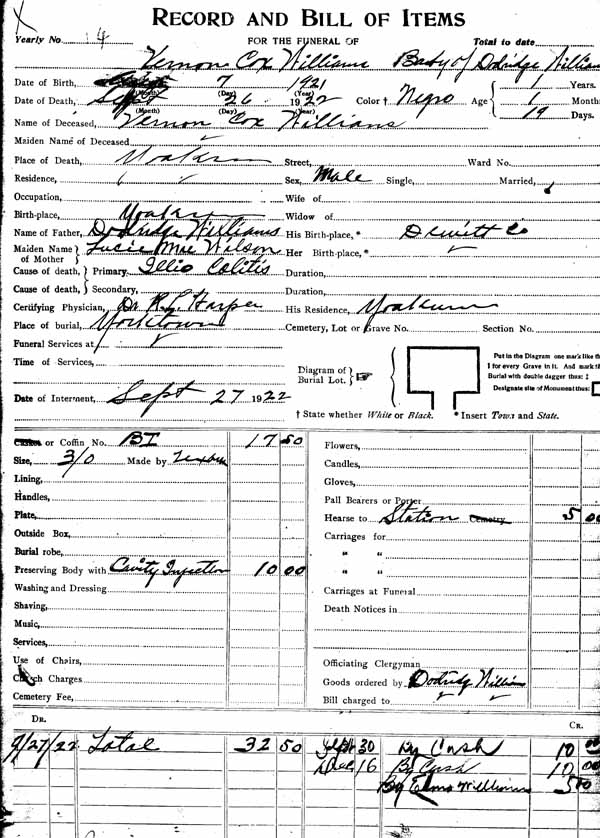 RECORD AND BILL OF ITEMS
Yearly No 14 FOR THE FUNERAL OF Total to date
Vernon Cox Williams Baby of Dodridge William
Date of Birth, 7 1921 1 Years.
(Month) (Day) (Year)
Date of Death, Sept 26 1922 Color † Negro Age 1 Month
(Month) (Day) (Year) 19 Days.
Name of Deceased, Vernon Cox Willians
Maiden Name of Deceased
Place of Death, Yoakum Street, Ward No.
Residence, Sex, Male Single, Married,
Occupation, Wife of
Birth-place, Yoakum Widow of
Name of Father, Dodridge Williams His Birth-place, * Dewitt Co
Maiden Name of Mother Lucie Mae Wilson Her Birth-place, *
Cause of death, Primary, Illio Colitis Duration,
Cause of death, Secondary, Duration,
Certifying Physician, Dr R. L. Harper His Residence, Yoakum
Place of burial, Yorktown Cemetery, Lot or Grave No. Section No.
Funeral Services at
Time of Services,
Diagram of Burial Lot.
Put in the Diagram one mark like th
I for every Grave in it. And mark th
Burial with double dagger thus: ‡
Designate site of Monument thus:
Date of Interment, Sept 27 1922
† State whether White or Black. * Insert Town and State.
Casket or Coffin No. BT 17 50 Flowers,
Size, 3/0 Made by Candles,
Lining, Gloves,
Handles, Pall Bearers or Porter
Plate, Hearse to Station Cemetry 5 00
Outside Box, Carriages for
Burial robe, " "
Preserving Body with Cavity Injection 10 00 " "
Washing and Dressing Carriages at Funeral
Shaving, Death Notices in
Music,
Services,
Use of Chairs, Officiating Clergyman
Church Charges Goods ordered by Dodridg William
Cemetery Fee, Bill charged to
DR. CR.
9/27/22 Total 32 50 Sept 30 By Cash 10 00
Dec 16 By Cash 10 00
By Elmo Williams 5 00